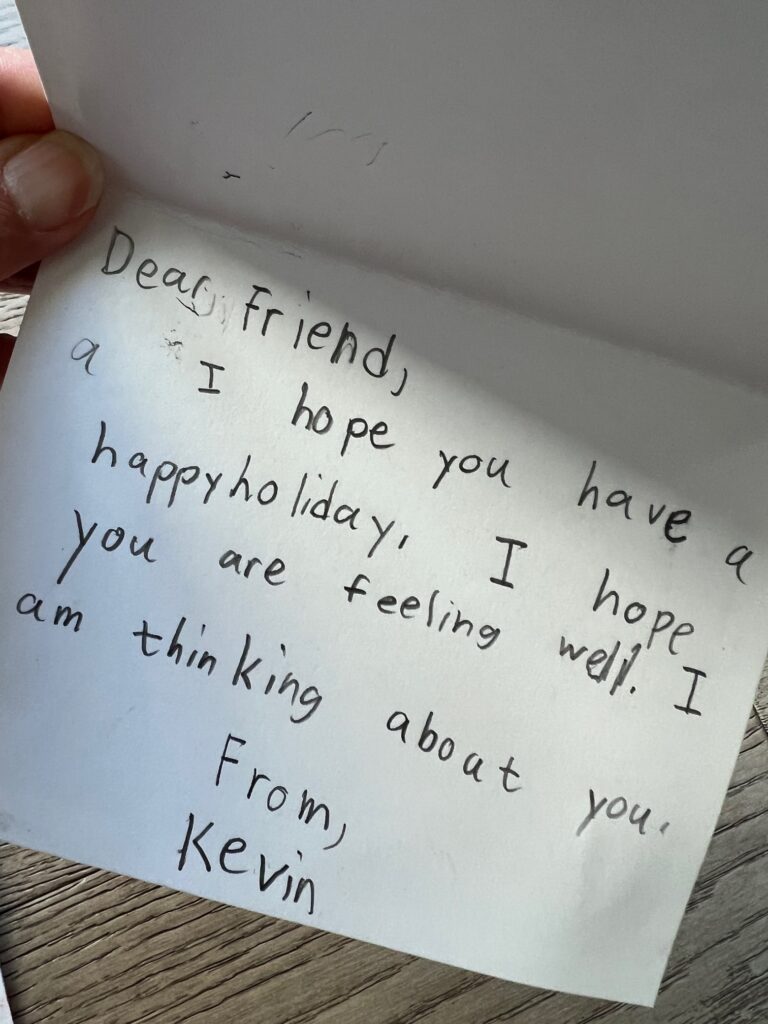 Dear Friend,
a I hope you have a
happyholiday, I hope
you are feeling well. I
am thinking about you.
From,
Kevin